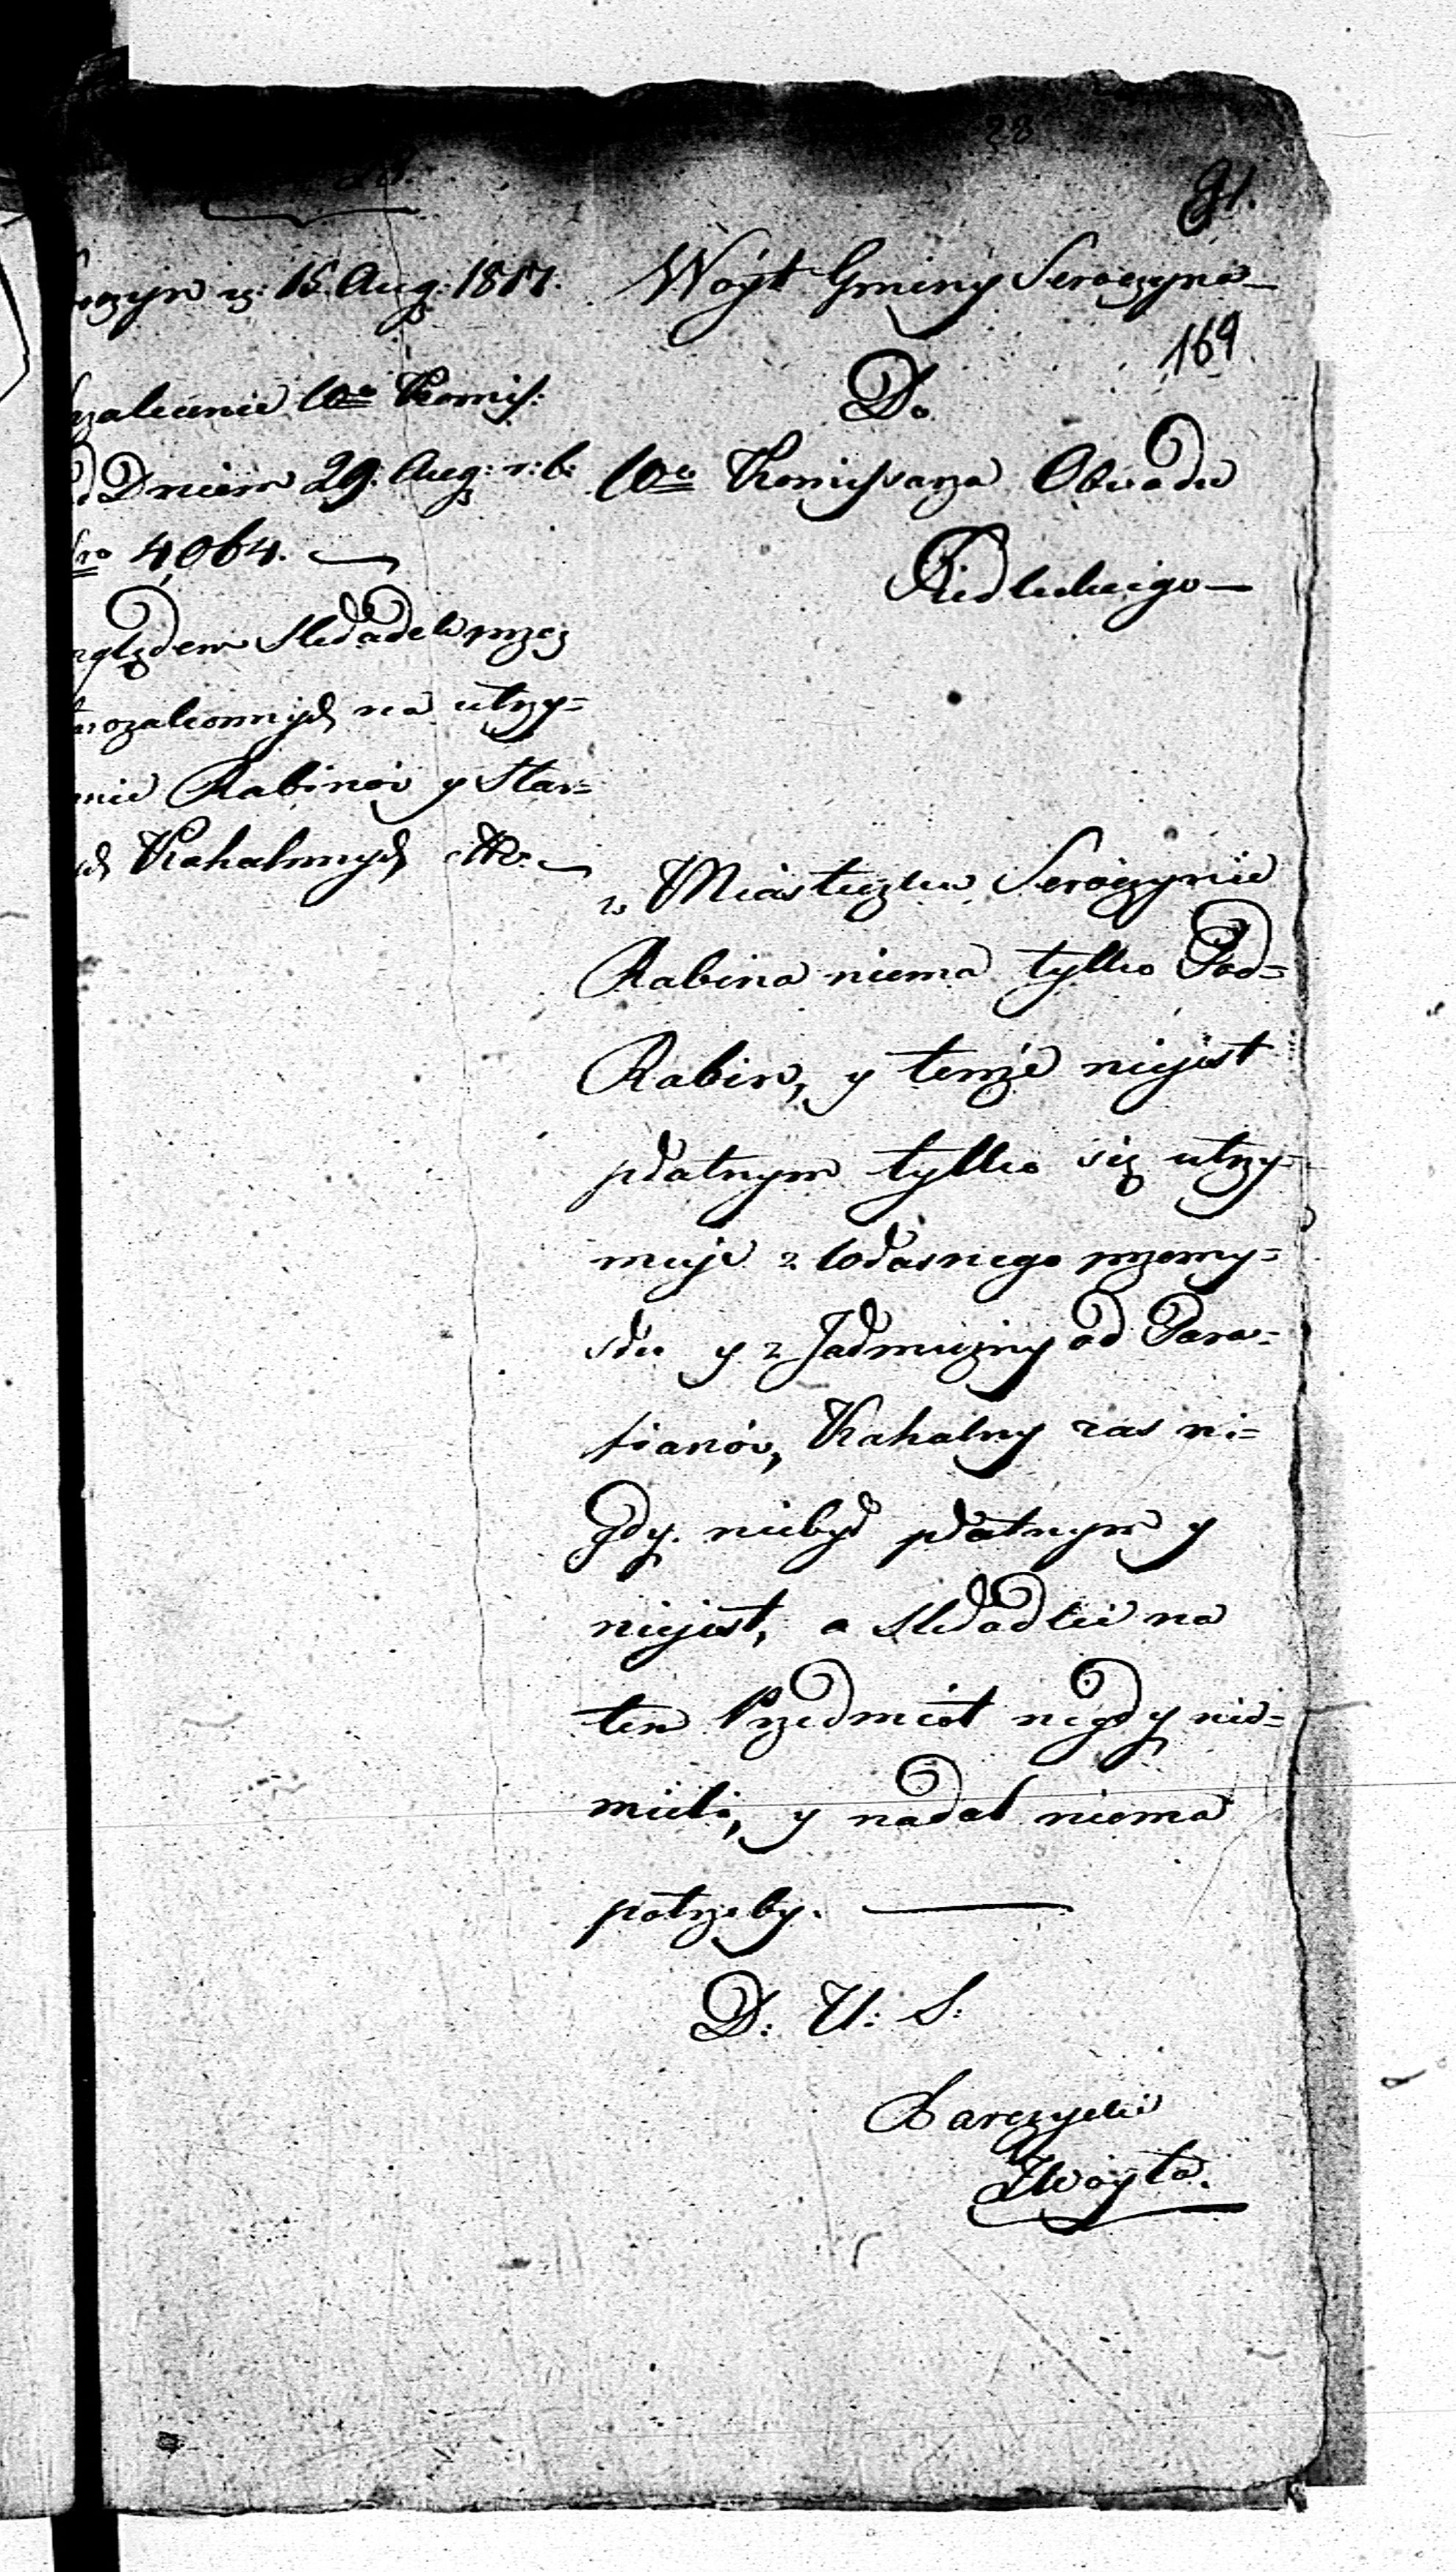 28
91.
169
rozyn d: 15. Aug: 1817.
zalecenie Wo Komis:
d Dniem 29. Aug: r: b:
Nro 4,064.
zględem Składek przez
rozakonnych na utrzy=
nie Rabinów y Star=
ch Kahalnych etc.
Woyt Gminy Seroczyna
Do
Wo Komissarza Obwodu
Siedleckiego
w Miasteczku Seroczynie
Rabina niema tylko Pod=
Rabin, y tenże niejest
płatnym tylko się utrzy=
muje z własnego przemy=
słu y z Jałmużny od Para=
fianów, Kahalny zas ni=
gdy niebył płatnym y
niejest, a składki na
ten Przedmiot nigdy nie=
mieli, y nadal niema
potrzeby.
D: U: S:
Barczycki
Z Woyta.